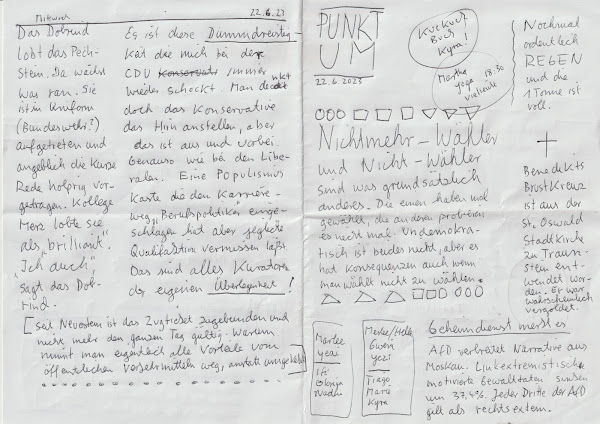 Mittwoch
22.6.23
Das Dobrind
lobt das Pech-
Stein. Da wächst
was ran. Sie
ist in Uniform
(Bundeswehr?)
aufgetreten und
angeblich die kurze
Rede holprig vor-
getragen. Kollege
Merz lobte sie
als "brilliant".
"Ich auch",
sagt das Dob-
rind.
Es ist diese Dummdreistig-
keit die mich bei der
CDU immer
wieder schockt. Man denkt
doch das Konservative
das Hirn anstellen, aber
das ist aus und vorbei.
Genauso wie bei den Libe-
ralen. Eine Populismus
Kaste die den Karriere-
weg "Berufspolitiker" einge-
schlagen hat aber jegliche
Qualifaktion vermissen läßt.
Das sind alles Kuratoren
der eigenen Überlegenheit!
[seit Neuestem ist das Zugticket zugebunden und
nicht mehr den ganzen Tag gültig. Warum
nimmt man eigentlich alle Vorteile vom
öffentlichen Verkehrmitteln weg, anstatt umgekehrt]
PUNKT
UM
22.6.2023
Kuckuck
Buch
Kyra!
Martha
Yoga 18:30
vielleicht
Nochmal
ordentlich
REGEN
und die
1 Tonne ist
voll.
Nichtmehr-Wähler
und Nicht-Wähler
sind was grundsätzlich
anderes. Die einen haben mal
gewählt, die anderen probieren
es nicht mal. Undemokra-
tisch ist beides nicht, aber es
hat Konsequenzen auch wenn
man wählt nicht zu wählen.
Benedikts
Brustkreuz
ist aus der
St. Oswald
Stadtkirche
zu Traun-
stein ent-
wendet wor-
den. Er war
wahrscheinlich
vergoldet.
Marlee
yezi
Ifi
Nadh
Marlee/Hella
Gwen
Yezi
Tiago
Mara
Kyra
Geheimdienst merkt es
AfD verbreitet Narrative aus
Moskau. Linkextremistisch
motivierte Gewalttaten sinken
um 37,4%. Jeder Dritte der AfD
gilt als rechtsextrem.